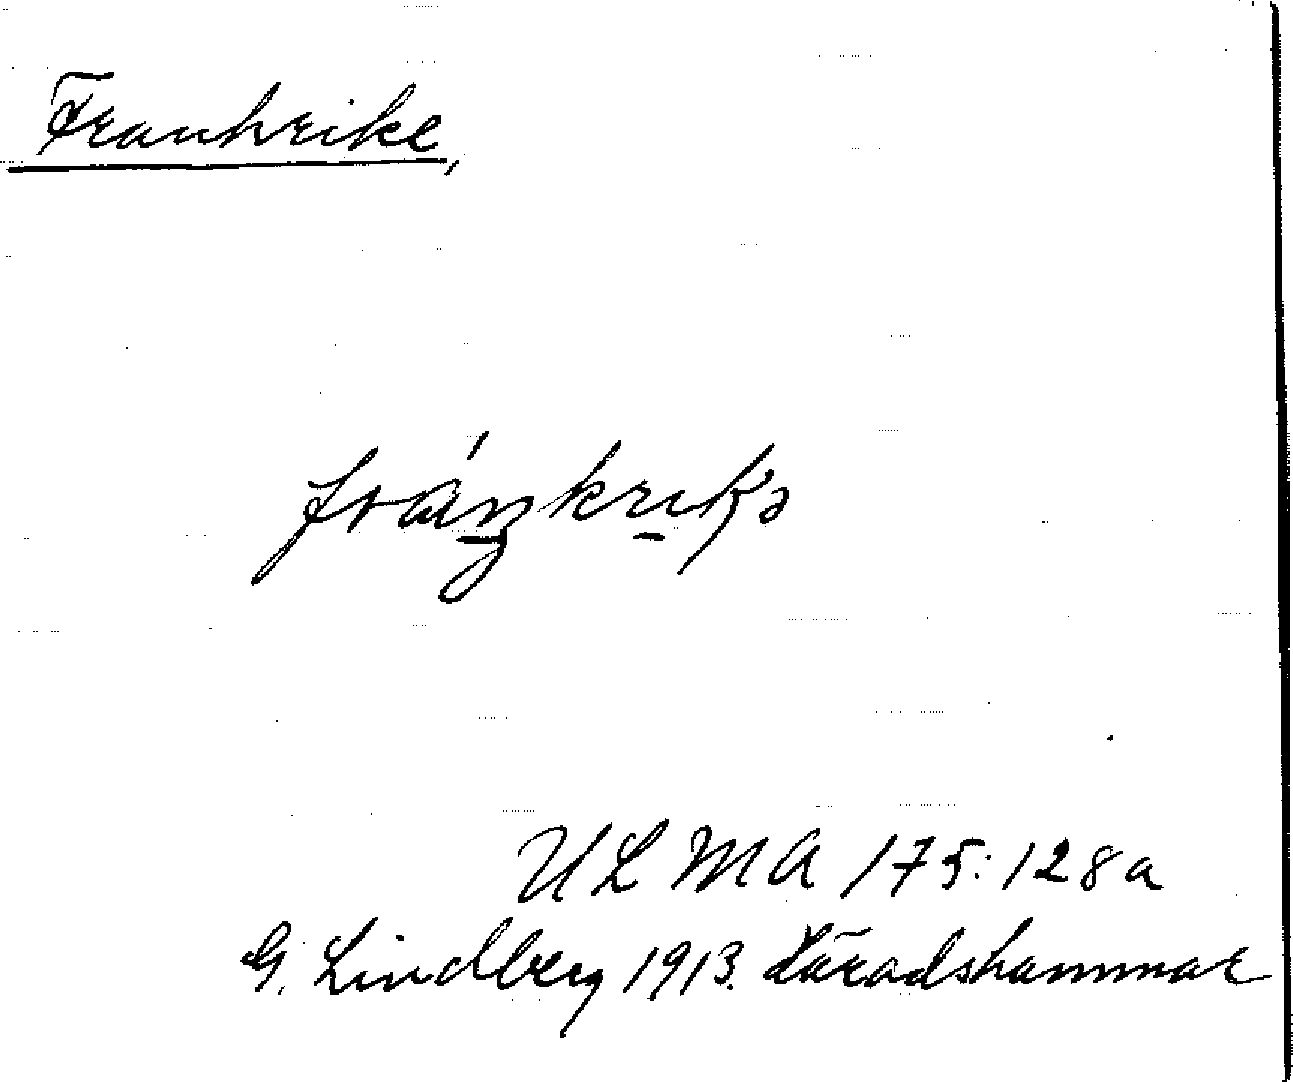 Frankrike,
ULMA 175:128a
G. Lindberg 1913. Häradshammar